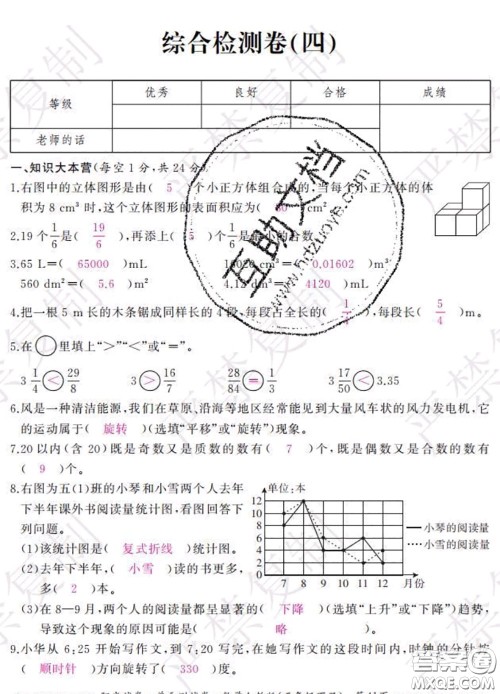 综合检测卷(四)
等级 优秀 良好 合格 成绩
老师的话
一、知识大本营(每空1分,共24分)
1.右图中的立体图形是由( 5 )个小正方体组合成的,当每个小正方体的体
积为8 cm³时,这个立体图形的表面积应为( )
2.19个1/6是( 19/6 ),再添上( 5 )个1/6是最小的合数。
3.65 L=( 65000 )mL 16020 cm³=( 0.01602 )m³
560 dm²=( 5.6 )m² 4.12 dm³=( 4120 )mL
4.把一根5 m长的木条锯成同样长的4段,每段占全长的( 1/4 ),每段长( 5/4 )m。
5.在○里填上“>”“<”或“=”。
3 1/4 < 29/8 3 > 16/7 28/84 = 1/3 3 17/50 < 3.35
6.风是一种清洁能源,我们在草原、沿海等地区经常能见到大量风车状的风力发电机,它
的运动属于( 旋转 )(选填“平移”或“旋转”)现象。
7.20以内(含20)既是奇数又是质数的数有( 7 )个,既是偶数又是合数的数有
( 9 )个。
8.右图为五(1)班的小琴和小雪两个人去年
下半年课外书阅读量统计图,看图回答下
列问题。
(1)该统计图是( 复式折线 )统计图。
(2)去年下半年,( 小雪 )读的书更多,
多( 2 )本。
单位:本
12
10
8
6
4
2
0
7 8 9 10 11 12 月份
小琴的阅读量
小雪的阅读量
(3)在8—9月,两个人的阅读量都呈显著的( 下降 )(选填“上升”或“下降”)趋势,
导致这个现象的原因可能是( 略 )。
9.小华从6:25开始写作文,到7:20写完,在她写作文的这段时间内,时钟的分针按
( 顺时针 )方向旋转了( 330 )度。
严禁复制
互助文档
www.hdzuoye.com
答案圈
MXQE.COM